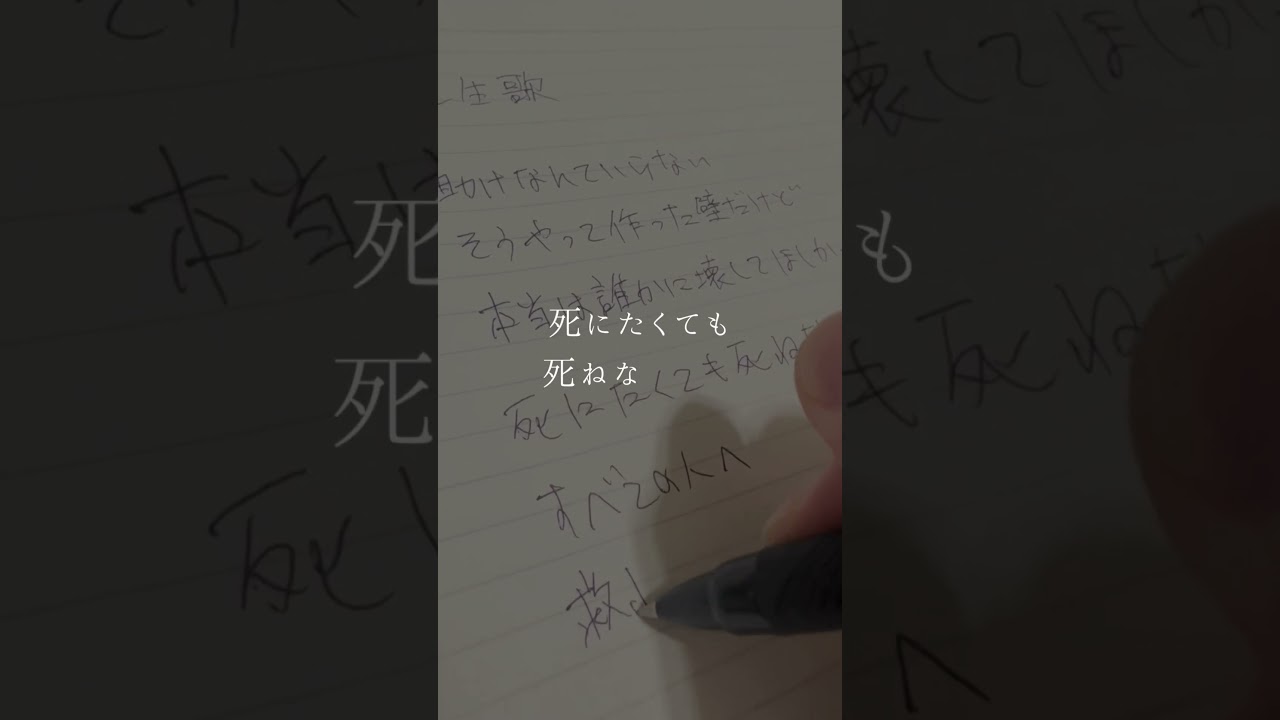 生歌
助けなんていらない
そうやって作った壁だけど
本当は誰かに壊してほしか
死にたくても
死ねな
死にたくても死ねな
すべての人へ
救